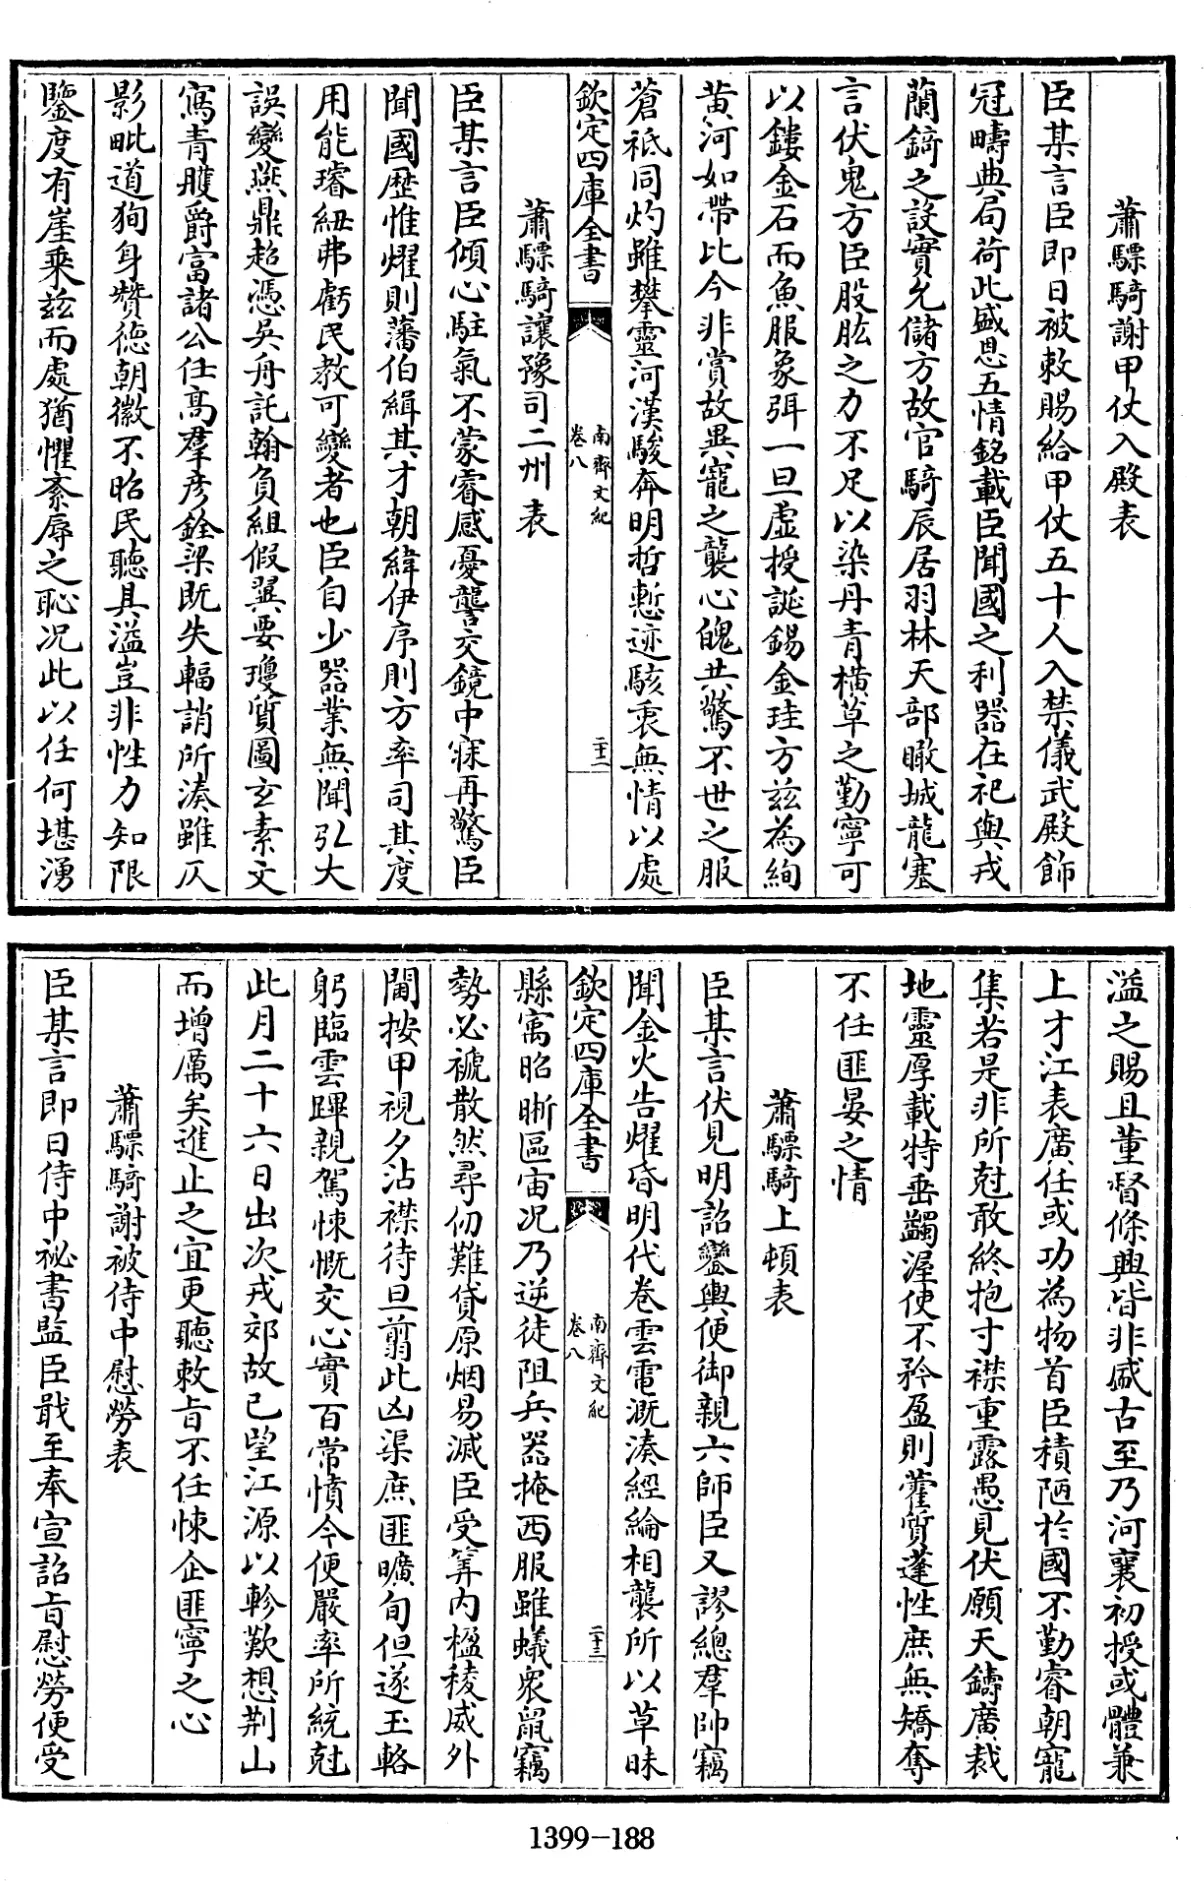 蕭驃騎謝甲仗入殿表
臣某言臣即日被敕賜給甲仗五十人入禁儀武殿飾
冠疇典局荷此盛恩五情銘載臣聞國之利器在祀與戎
蘭錡之設實允儲方故官騎辰居羽林天部瞰城龍塞
言伏鬼方臣股肱之力不足以染丹青橫草之勤寧可
以鏤金石而魚服象弭一旦虛授誕錫金珪方茲為絢
黄河如帶比今非賞故異寵之襲心魄共驚不世之服
蒼祇同灼雖攀靈河漢駿奔明哲慙迹駭衷無情以處
欽定四庫全書
南齊文紀
卷八
二十二
蕭驃騎讓豫司二州表
臣某言臣傾心駐氣不蒙睿感憂讋交鏡中寐再驚臣
聞國歴惟燿則藩伯緝其才朝緯伊序則方率司其度
用能璿紐弗虧民教可變者也臣自少器業無聞弘大
誤變燕鼎超憑吳舟託翰負組假翼要瓊質圖玄素文
寫青雘爵富諸公任髙羣彥銓梁既失輻誚所湊雖仄
影毗道狥身贊徳朝徽不昭民聽具溢豈非性力知限
鑒度有崖乗兹而處猶懼紊辱之恥况此以任何堪湧
溢之賜且董督條興皆非感古至乃河襄初授或體兼
上才江表廣任或功為物首臣積陋於國不勤睿朝寵
集若是非所尅敢終抱寸襟重露愚見伏願天鑄廣裁
地靈厚載特垂蠲渥使不矜盈則藿質蓬性庶無矯奪
不任匪晏之情
蕭驃騎上頓表
臣某言伏見明詔鑾輿便御親六師臣又謬總羣帥竊
聞金火告燿昏明代卷雲電溉湊經綸相襲所以草昧
欽定四庫全書
南齊文紀
卷八
二十三
縣寓昭晣區宙况乃逆徒阻兵器掩西服雖蟻衆鼠竊
勢必褫散然尋仞難貸原烟易滅臣受筭内楹稜威外
閫按甲視夕沾襟待旦翦此凶渠庶匪曠旬但遂玉輅
躬臨雲蹕親駕悚慨交心實百常憤今便嚴率所統尅
此月二十六日出次戎郊故已望江源以軫歎想荆山
而增厲矣進止之宜更聽敕旨不任悚企匪寧之心
蕭驃騎謝被侍中慰勞表
臣某言即日侍中祕書監臣戢至奉宣詔旨慰勞便受
1399-188